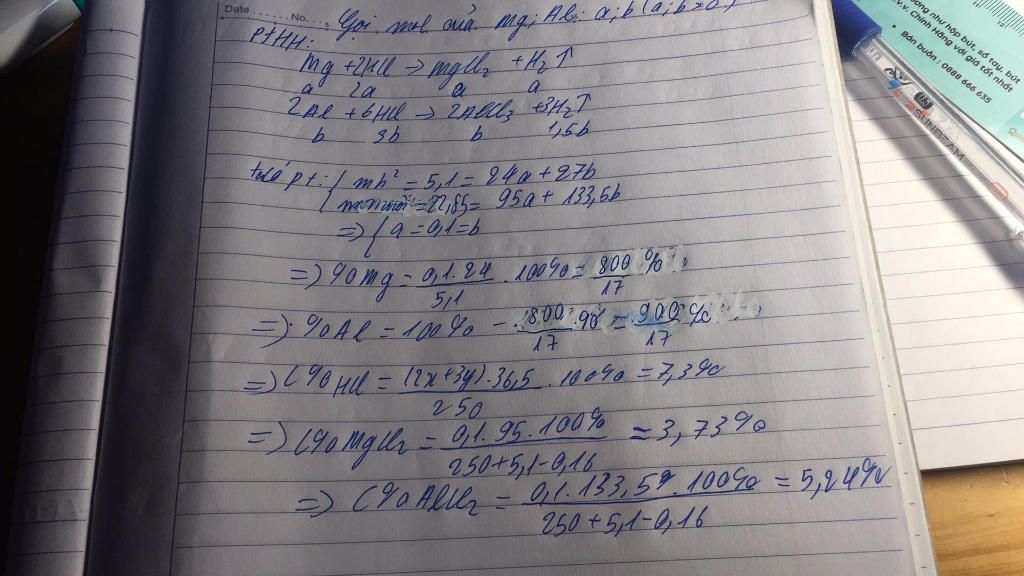 Date ............ No. ....
Gọi mol của Mg; Al: a; b (a; b > 0)
PTHH:
Mg + 2HCl → MgCl₂ + H₂↑
a 2a a a
2Al + 6HCl → 2AlCl₃ + 3H₂↑
b 3b b 1,5b
theo pt: { mh² = 5,1 = 24a + 27b
{ mmuối = 22,85 = 95a + 133,5b
=> { a = 0,1 = b
=> %Mg = 0,1.24 / 5,1 . 100% = 800/17 %
=> %Al = 100% - 800/17 % = 900/17 %
=> C%HCl = (2x+3y).36,5 / 250 . 100% = 7,3%
=> C%MgCl₂ = 0,1.95.100% / 250+5,1-0,16 = 3,73%
=> C%AlCl₂ = 0,1.133,5.100% / 250+5,1-0,16 = 5,24%
dụng như hộp bút, sổ tay, bút
v.v. Chính Hãng với giá tốt nhất
Bán buôn : 0888 666 635
SUNBEAM